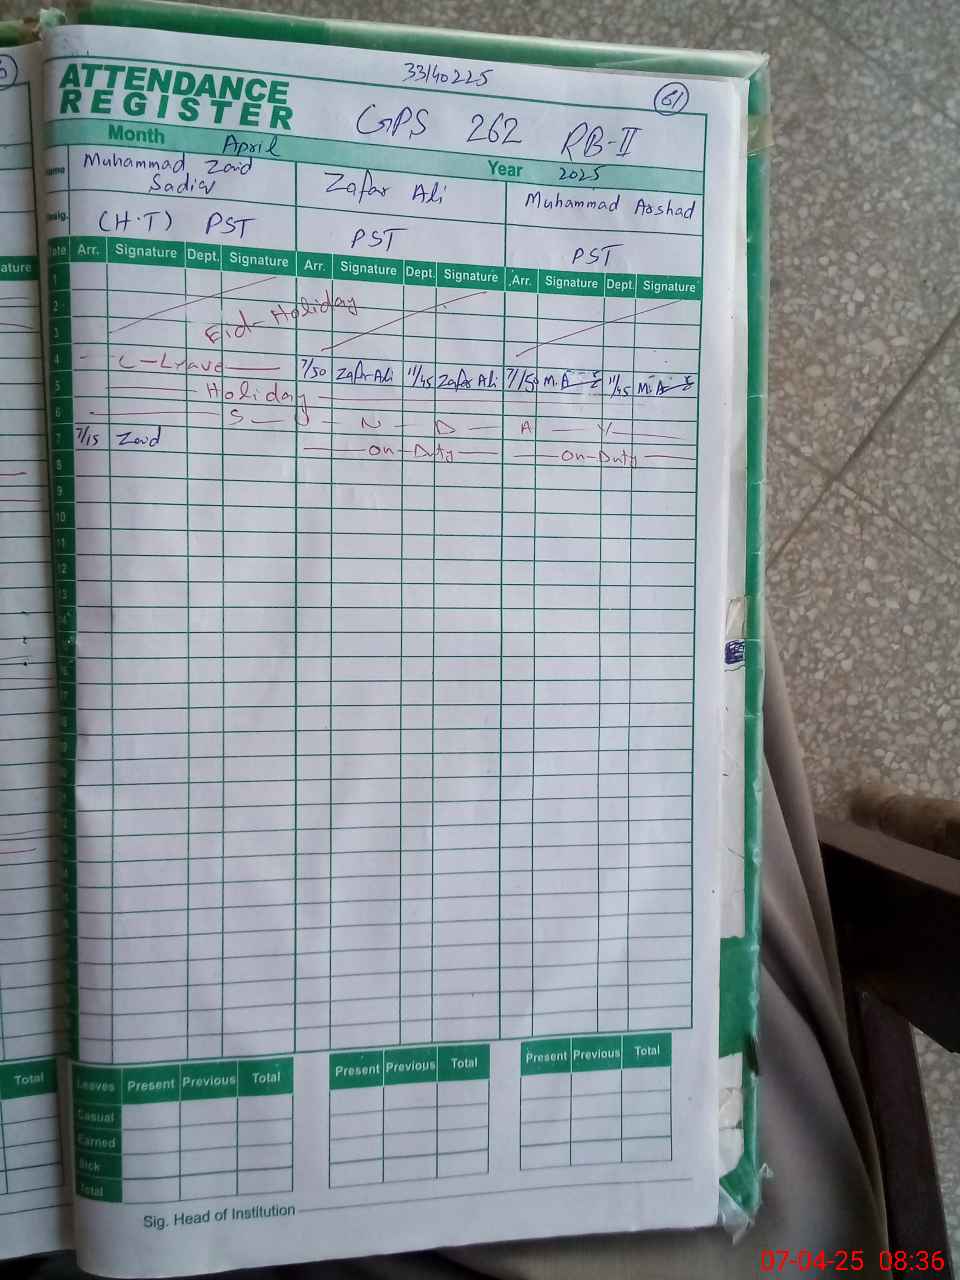 33140225
61
ATTENDANCE
REGISTER
GPS 262 RB-II
Month April Year 2025
Name Muhammad Zaid Sadiq Zafar Ali Muhammad Arshad
Desig. (H.T) PST PST PST
Date Arr. Signature Dept. Signature Arr. Signature Dept. Signature Arr. Signature Dept. Signature
1
2
3 Eid-Holiday
4 C-Leave 7/50 Zafar Ali 11/45 Zafar Ali 7/50 M.A 11/45 M.A
5 Holiday
6 S U N D A Y
7 7/15 Zaid On-Duty On-Duty
8
9
10
11
12
13
14
16
17
18
Leaves Present Previous Total Present Previous Total Present Previous Total
Casual
Earned
Sick
Total
Sig. Head of Institution
ature
Total
07-04-25 08:36